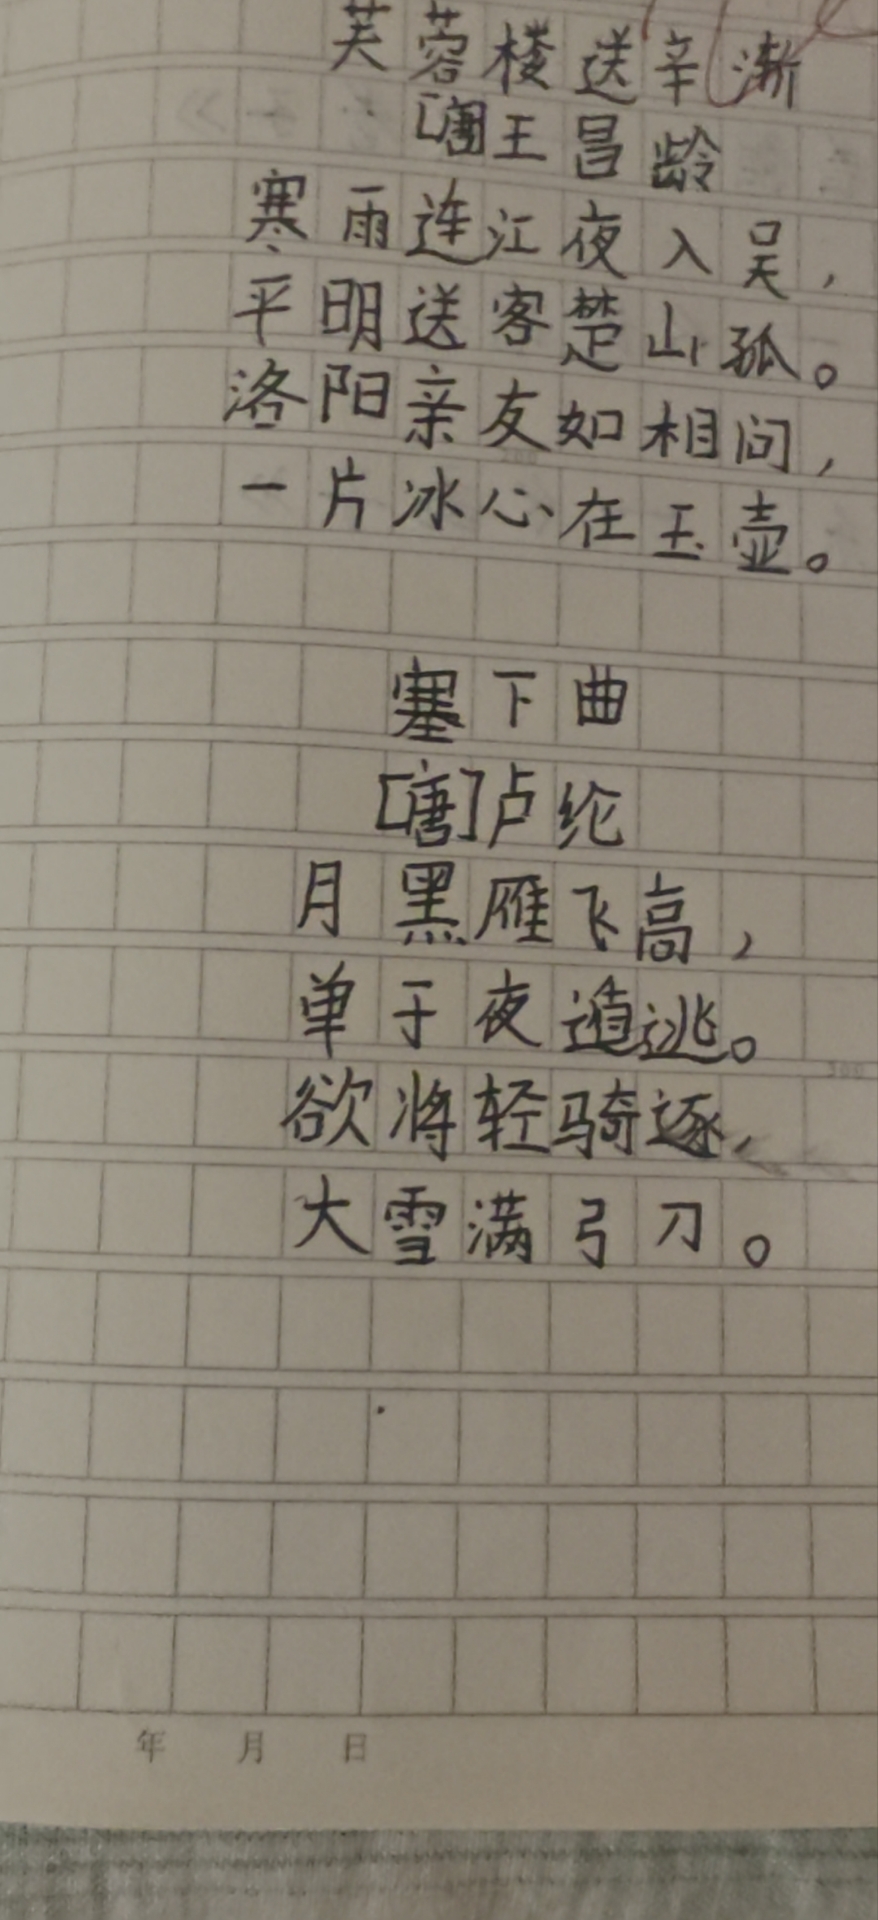 芙蓉楼送辛渐
[唐]王昌龄
寒雨连江夜入吴，
平明送客楚山孤。
洛阳亲友如相问，
一片冰心在玉壶。
塞下曲
[唐]卢纶
月黑雁飞高，
单于夜遁逃。
欲将轻骑逐，
300
大雪满弓刀。
年 月 日